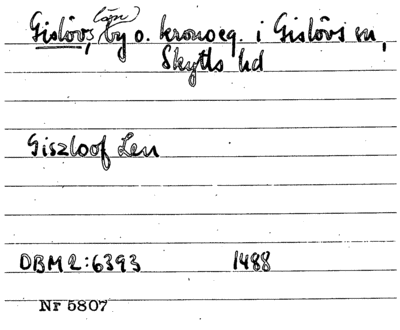 (län)
Gislövs, by o. kronoeg. i Gislövs sn,
Skytts hd
Giszloof Len
DBM 2:6393 1488
Nr 5807